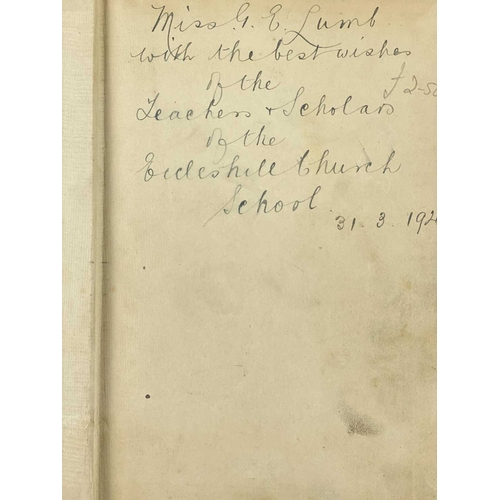 Miss G. E. Lumb.
with the best wishes
of the
£2-50
Teachers & Scholars
of the
Eccleshill Church
School.
31. 3. 192